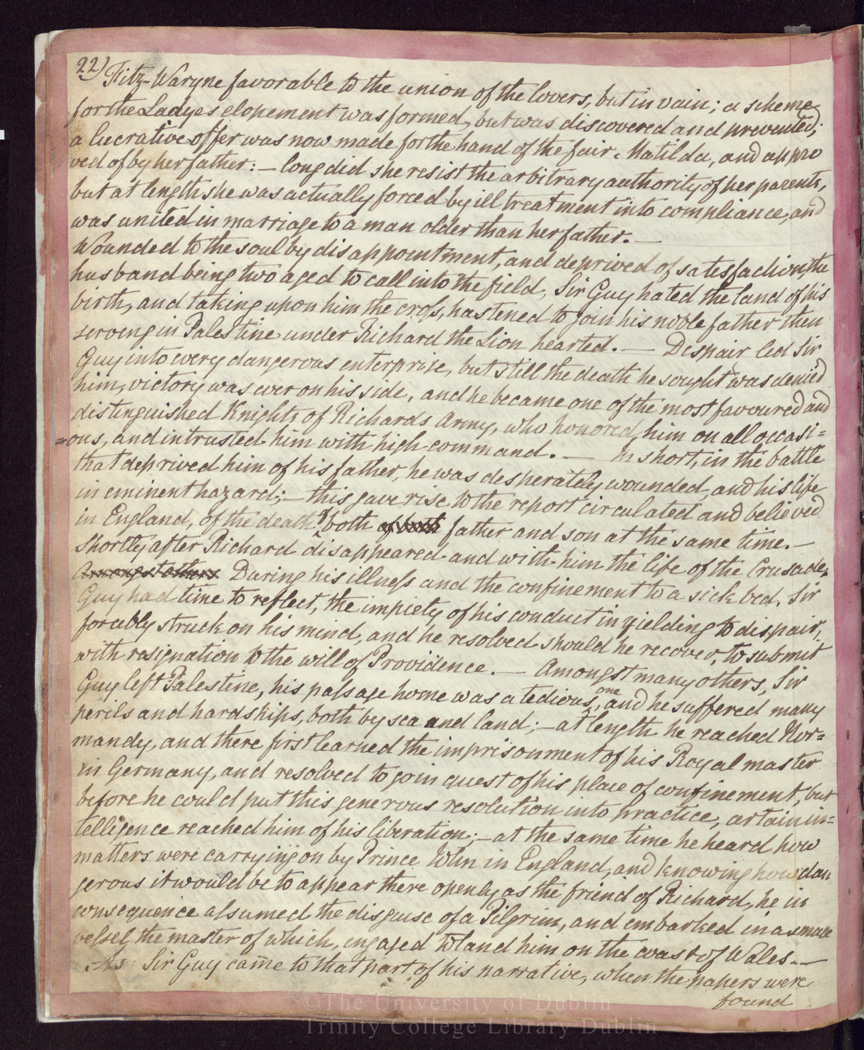 22)
Fitz-Waryne favorable to the union of the lovers, but in vain; a scheme
for the Ladye's elopement was formed, but was discovered and prevented;
a lucrative offer was now made for the hand of the fair Matilda, and appro
ved of by her father: — long did she resist the arbitrary authority of her parents,
but at length she was actually forced by ill treatment into compliance, and
was united in marriage to a man older than her father. —
Wounded to the soul by disappointment, and deprived of satisfaction, the
husband being two aged to call into the field, Sir Guy hated the land of his
birth, and taking upon him the cross, hastened to join his noble father then
serving in Palestine under Richard the Lion hearted. — Despair led Sir
Guy into every dangerous enterprise, but still the death he sought was denied
him, victory was ever on his side, and he became one of the most favoured and
distinguished Knights of Richards Army, who honored him on all occasi=
=ons, and intrusted him with high command. — In short, in the battle
that deprived him of his father, he was desperately wounded, and his life
in eminent hazard; — this gave rise to the report circulated and believed
in England, of the death of both father and son at the same time. —
Shortly after Richard disappeared and with him the life of the Crusade,
During his illness and the confinement to a sick bed, Sir
Guy had time to reflect, the impiety of his conduct in yielding to despair,
forcibly struck on his mind, and he resolved should he recover, to submit
with resignation to the will of Providence. — Amongst many others, Sir
Guy left Palestine, his passage home was a tedious one, and he suffered many
perils and hardships, both by sea and land; — at length he reached Nor=
mandy, and there first learned the imprisonment of his Royal master
in Germany, and resolved to join quest of his place of confinement, but
before he could put this generous resolution into practice, certain in=
telligence reached him of his liberation; — at the same time he heard how
matters were carrying on by Prince John in England, and knowing how dan
gerous it would be to appear there openly as the friend of Richard, he in
consequence assumed the disguise of a Pilgrim, and embarked in a small
vessel, the master of which, engaged to land him on the coast of Wales. —
As Sir Guy came to that part of his narrative, when the papers were
found
©The University of Dublin
Trinity College Library Dublin